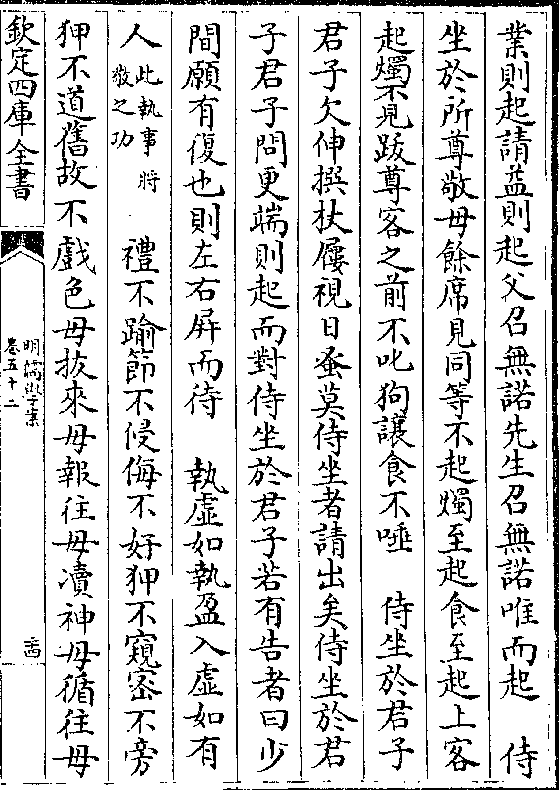 業則起請益則起父召無諾先生召無諾唯而起　侍
坐於所尊敬毋餘席見同等不起燭至起食至起上客
起燭不見跋尊客之前不叱狗讓食不唾　侍坐於君子
君子欠伸撰杖屨視日蚤莫侍坐者請出矣侍坐於君
子君子問更端則起而對侍坐於君子若有告者曰少
間願有復也則左右屏而待　執虛如執盈入虛如有
人此執事將敬之功　禮不踰節不侵侮不好狎不窺密不旁
狎不道舊故不戲色毋拔來毋報往毋瀆神毋循往毋
欽定四庫全書
明儒學案
卷五十二